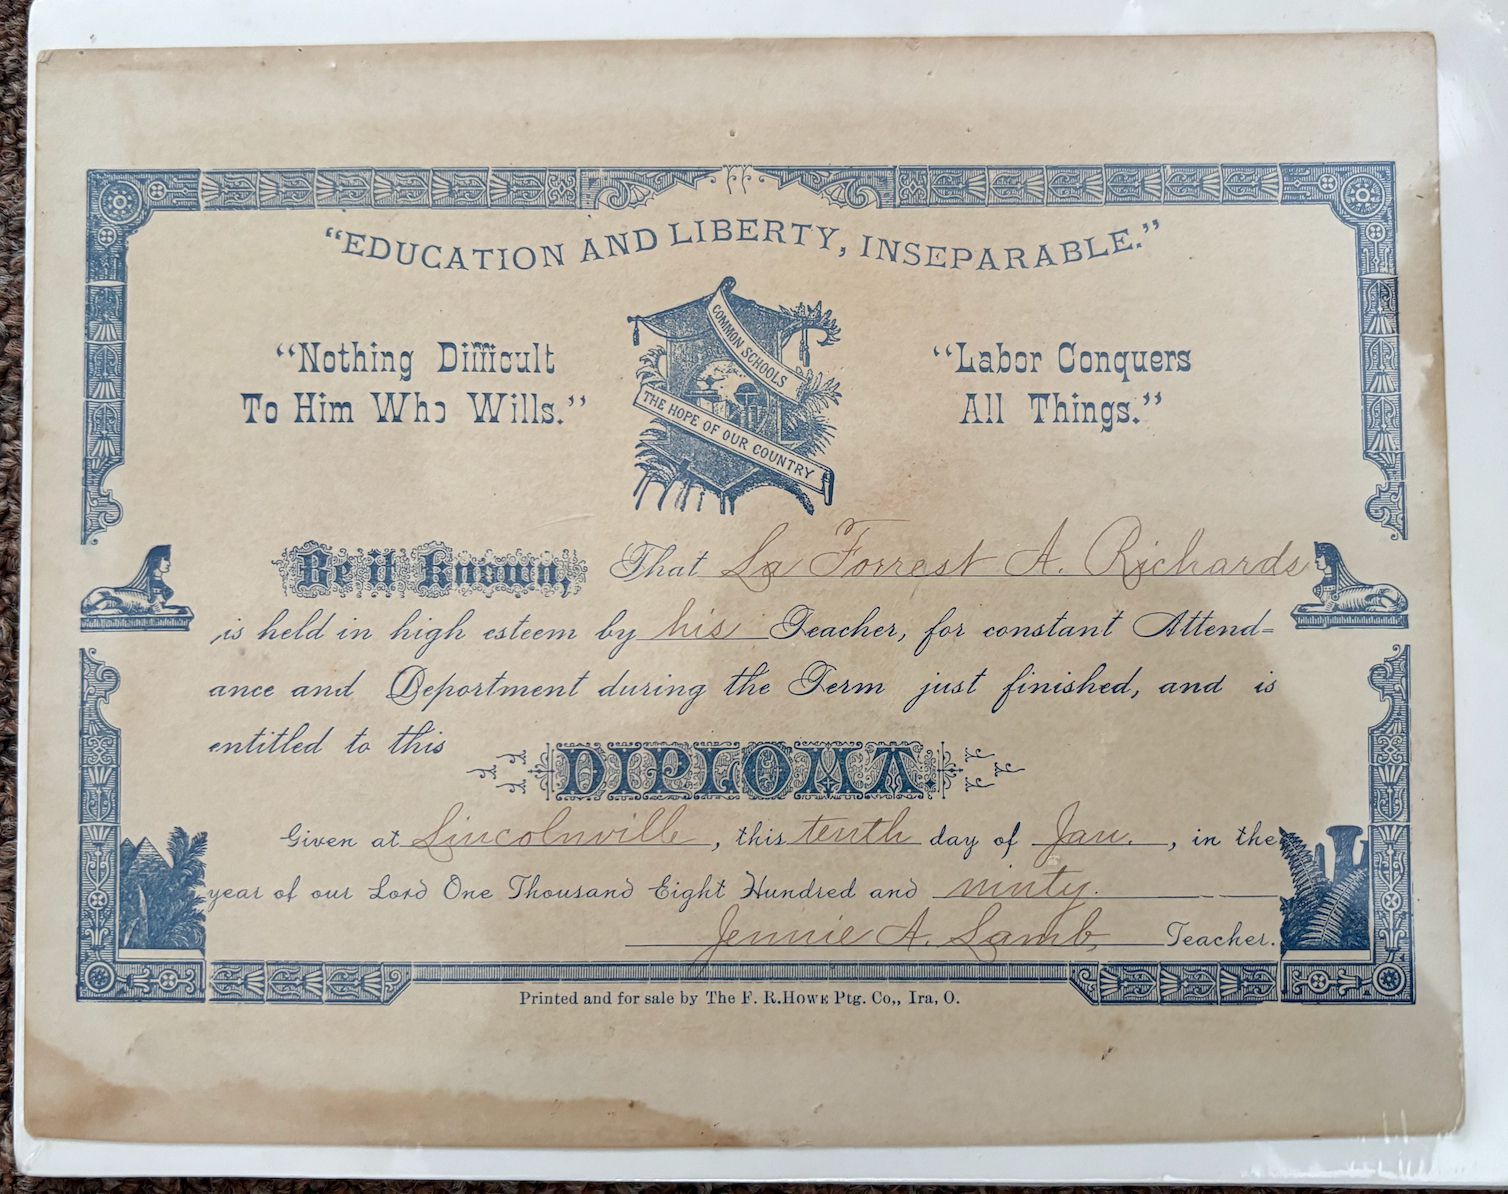 "EDUCATION AND LIBERTY, INSEPARABLE."
"Nothing Difficult
To Him Who Wills."
COMMON SCHOOLS
THE HOPE OF OUR COUNTRY
"Labor Conquers
All Things."
Be it Known, That La Forrest A. Richards
is held in high esteem by his Teacher, for constant Attend=
ance and Deportment during the Term just finished, and is
entitled to this
DIPLOMA.
Given at Lincolnville, this tenth day of Jan., in the
year of our Lord One Thousand Eight Hundred and ninty.
Jennie A. Lamb, Teacher.
Printed and for sale by The F. R. Howe Ptg. Co,, Ira, O.